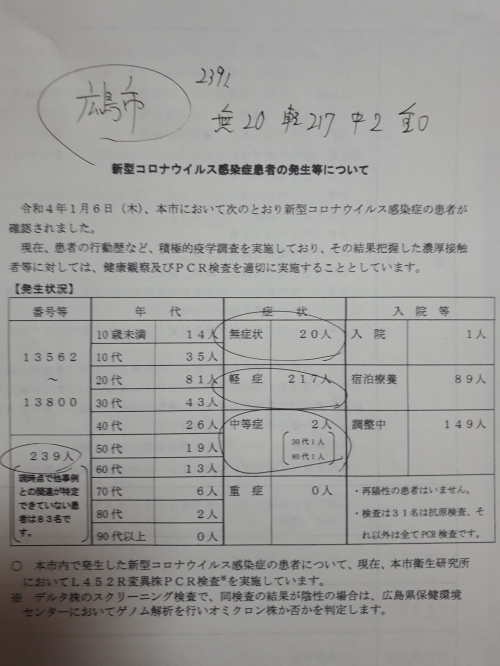 広島市
239人
無20 軽217 中2 重0
新型コロナウイルス感染症患者の発生等について
令和4年1月6日(木)、本市において次のとおり新型コロナウイルス感染症の患者が
確認されました。
現在、患者の行動歴など、積極的疫学調査を実施しており、その結果把握した濃厚接触
者等に対しては、健康観察及びPCR検査を適切に実施することとしています。
【発生状況】
番号等 年代 症状 入院等
13562
～
13800
239人
現時点で他事例
との関連が特定
できていない患
者は83名で
す。
10歳未満 14人
10代 35人
20代 81人
30代 43人
40代 26人
50代 19人
60代 13人
70代 6人
80代 2人
90代以上 0人
無症状 20人
軽症 217人
中等症 2人
30代1人
80代1人
重症 0人
入院 1人
宿泊療養 89人
調整中 149人
・再陽性の患者はいません。
・検査は31名は抗原検査、そ
れ以外は全てPCR検査です。
○ 本市内で発生した新型コロナウイルス感染症の患者について、現在、本市衛生研究所
においてL452R変異株PCR検査※を実施しています。
※ デルタ株のスクリーニング検査で、同検査の結果が陰性の場合は、広島県保健環境
センターにおいてゲノム解析を行いオミクロン株か否かを判定します。